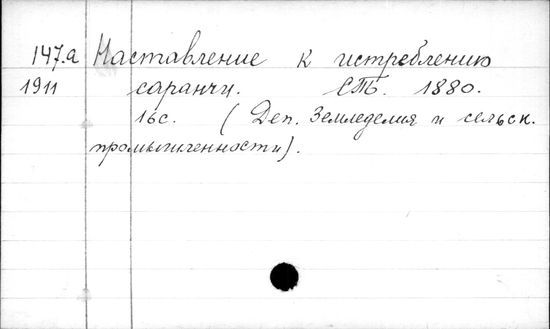 147.а Наставление к истреблению
1911 саранчи. СПБ. 1880.
16с. (Деп. Земледелия и сельск.
промышленности).